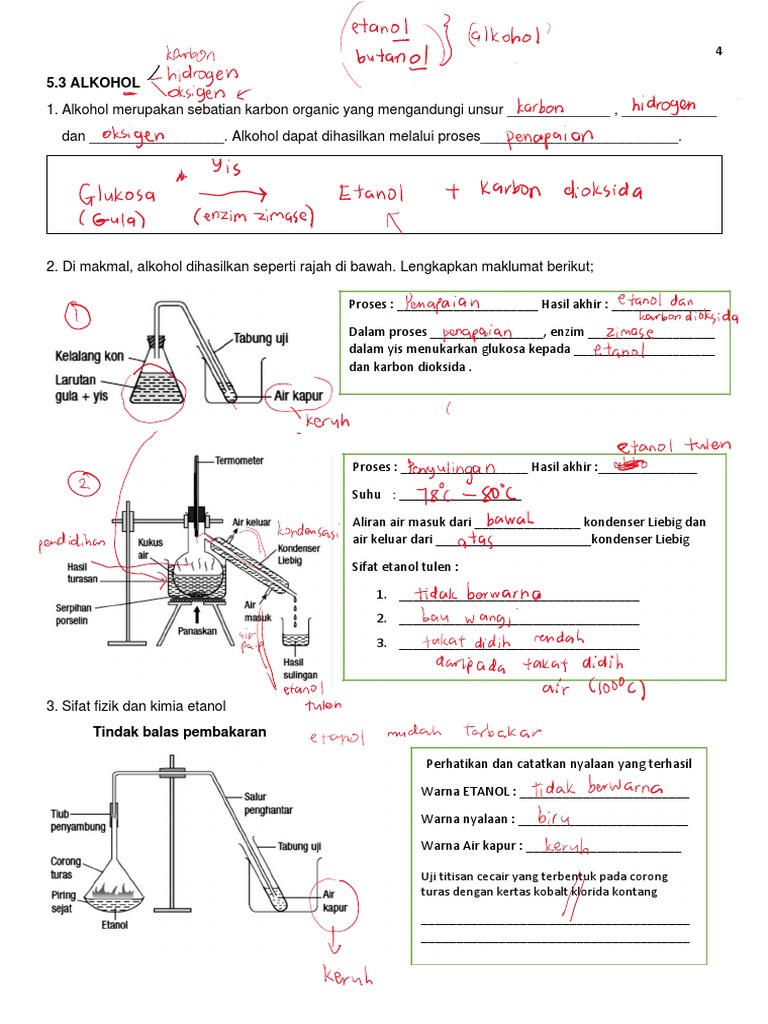 etanol
butanol
(alkohol)
4
karbon
hidrogen
oksigen
5.3 ALKOHOL
1. Alkohol merupakan sebatian karbon organic yang mengandungi unsur karbon , hidrogen
dan oksigen. Alkohol dapat dihasilkan melalui proses penapaian.
yis
Glukosa → Etanol + Karbon dioksida
(Gula) (enzim zimase)
2. Di makmal, alkohol dihasilkan seperti rajah di bawah. Lengkapkan maklumat berikut;
1
Tabung uji
Kelalang kon
Larutan
gula + yis
Air kapur
keruh
Proses : Penapaian Hasil akhir : etanol dan
karbon dioksida
Dalam proses penapaian, enzim zimase
dalam yis menukarkan glukosa kepada etanol
dan karbon dioksida .
2
Termometer
Air keluar
kondensasi
Kondenser
Liebig
pendidihan
Kukus
air
Hasil
turasan
Serpihan
porselin
Panaskan
Air
masuk
air
paip
Hasil
sulingan
etanol
tulen
etanol tulen
Proses : Penyulingan Hasil akhir :
Suhu : 78°C – 80°C
Aliran air masuk dari bawah kondenser Liebig dan
air keluar dari atas kondenser Liebig
Sifat etanol tulen :
1. tidak berwarna
2. bau wangi
3. takat didih rendah
daripada takat didih
air (100°C)
3. Sifat fizik dan kimia etanol
Tindak balas pembakaran
etanol mudah terbakar
Tiub
penyambung
Salur
penghantar
Corong
turas
Tabung uji
Piring
sejat
Etanol
Air
kapur
keruh
Perhatikan dan catatkan nyalaan yang terhasil
Warna ETANOL : tidak berwarna
Warna nyalaan : biru
Warna Air kapur : keruh
Uji titisan cecair yang terbentuk pada corong
turas dengan kertas kobalt klorida kontang